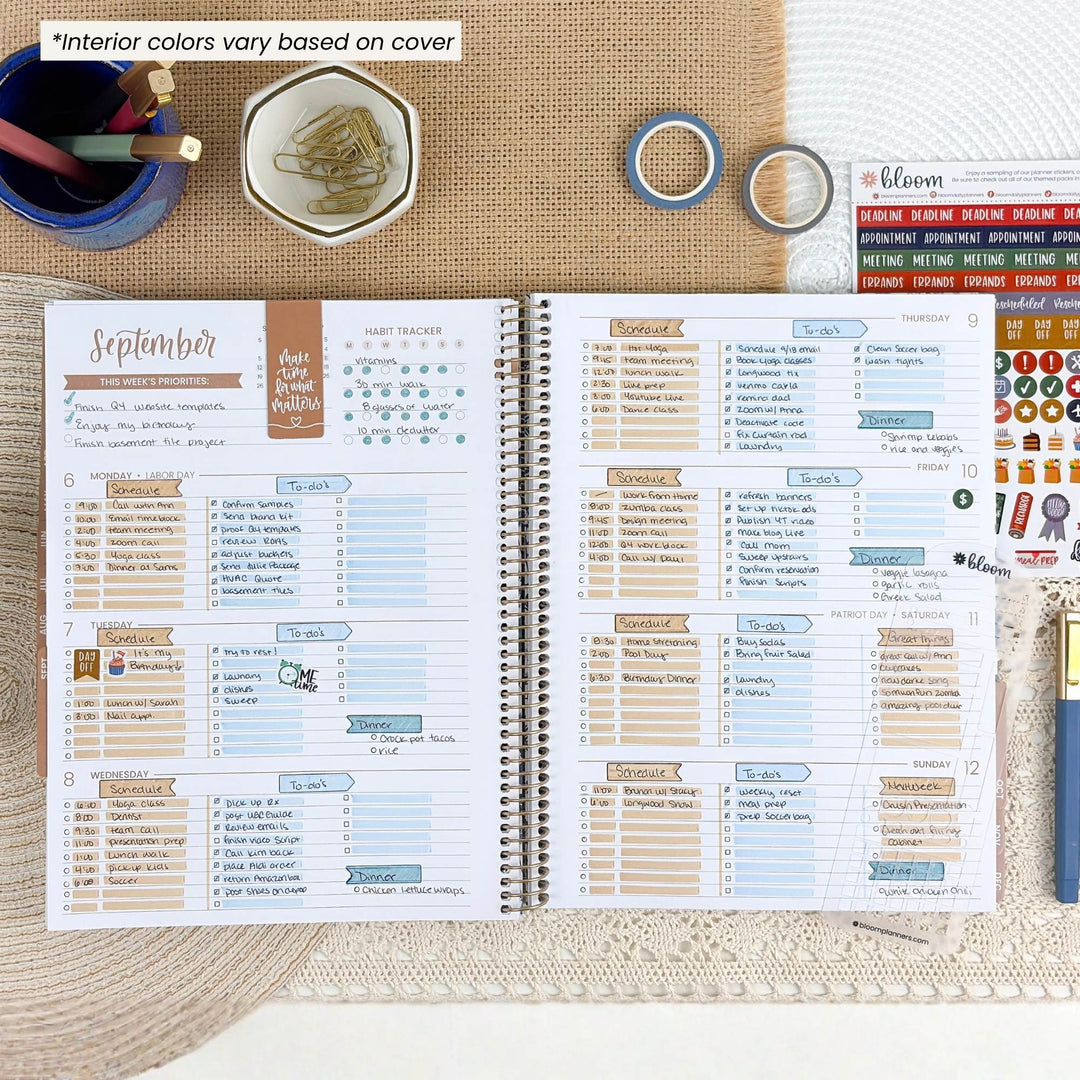 *Interior colors vary based on cover
bloom
Enjoy a sampling of our planner stickers,
Be sure to check out all of our themed packs in
bloomplanners.com
bloomdailyplanners
bloomdailyplanners
DEADLINE DEADLINE DEADLINE DEADLINE DEADLINE
APPOINTMENT APPOINTMENT APPOINTMENT
MEETING MEETING MEETING MEETING
ERRANDS ERRANDS ERRANDS ERRANDS
Rescheduled
DAY OFF DAY OFF DAY OFF
RECHARGE
meal PREP
September
THIS WEEK'S PRIORITIES:
Finish Q4 website templates
Enjoy my birthday
Finish basement tile project
make
time
for what
matters
HABIT TRACKER
M T W T F S S
vitamins
30 min walk
8 glasses of water
10 min declutter
6 MONDAY • LABOR DAY
Schedule
9:00 Call with Ann
10:00 Email time block
2:00 team meeting
4:00 zoom call
5:30 Yoga class
7:00 Dinner at Sams
To-do's
Confirm samples
Send brand kit
proof Q4 templates
review ROAS
adjust budgets
Send Julie Package
HVAC Quote
basement tiles
7 TUESDAY
Schedule
DAY OFF
It's my
Birthday!
1:00 Lunch w/ Sarah
3:00 Nail appt.
To-do's
try to rest!
laundry
dishes
sweep
ME
time
Dinner
Crock pot tacos
rice
8 WEDNESDAY
Schedule
6:00 Yoga class
8:00 Dentist
9:30 team call
11:00 presentation prep
1:00 Lunch walk
4:00 pick up kids
6:00 Soccer
To-do's
pick up Rx
Review emails
finish video script
Call Kim back
place Aldi order
return Amazon box
Dinner
Chicken lettuce wraps
THURSDAY 9
Schedule
7:00 Hot Yoga
9:45 team meeting
12:00 lunch walk
2:30 Live prep
3:00 YouTube Live
6:00 Dance class
To-do's
Schedule 9/13 email
Book Yoga classes
Longwood tix
venmo Carla
remind dad
zoom w/ Anna
Deactivate code
fix curtain rod
Laundry
Clean Soccer bag
wash tights
Dinner
Shrimp kebabs
rice and veggies
FRIDAY 10
Schedule
work from Home
8:00 zumba class
9:45 Design meeting
11:00 zoom call
12:00 Q4 work block
4:00 Call w/ Paul
To-do's
refresh banners
Set up tiktok ads
Publish YT video
make blog Live
Call mom
Sweep upstairs
Confirm reservation
finish scripts
Dinner
veggie lasagna
garlic rolls
Greek Salad
bloom
PATRIOT DAY • SATURDAY 11
Schedule
8:30 Home Stretching
2:00 Pool Day
6:30 Birthday Dinner
To-do's
Buy Sodas
Bring fruit Salad
laundry
dishes
Great Things
great call w/ Ann
cupcakes
SUNDAY 12
Schedule
11:00 Brunch w/ Stacy
6:00 Longwood Show
To-do's
weekly reset
meal prep
prep Soccer bag
Next Week
Brush Presentation
Clean out filing
cabinet
Dinner
white chicken chili
bloomplanners.com
AUG
SEPT